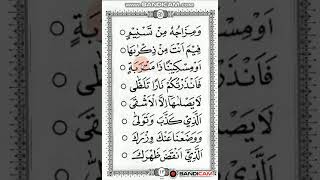 www.BANDICAM.com
وَمِزَاجُهُ مِنْ تَسْنِيْمٍ
فِيْمَ اَنْتَ مِنْ ذِكْرٰىهَا
اَوْمِسْكِيْنًا ذَا مَتْرَبَةٍ
فَاَنْذَرْتُكُمْ نَارًا تَلَظّٰى
لَا يَصْلٰىهَا اِلَّا الْاَشْقَى
الَّذِيْ كَذَّبَ وَتَوَلّٰى
وَوَضَعْنَا عَنْكَ وِزْرَكَ
الَّذِيْ اَنْقَضَ ظَهْرَكَ
BANDICAM